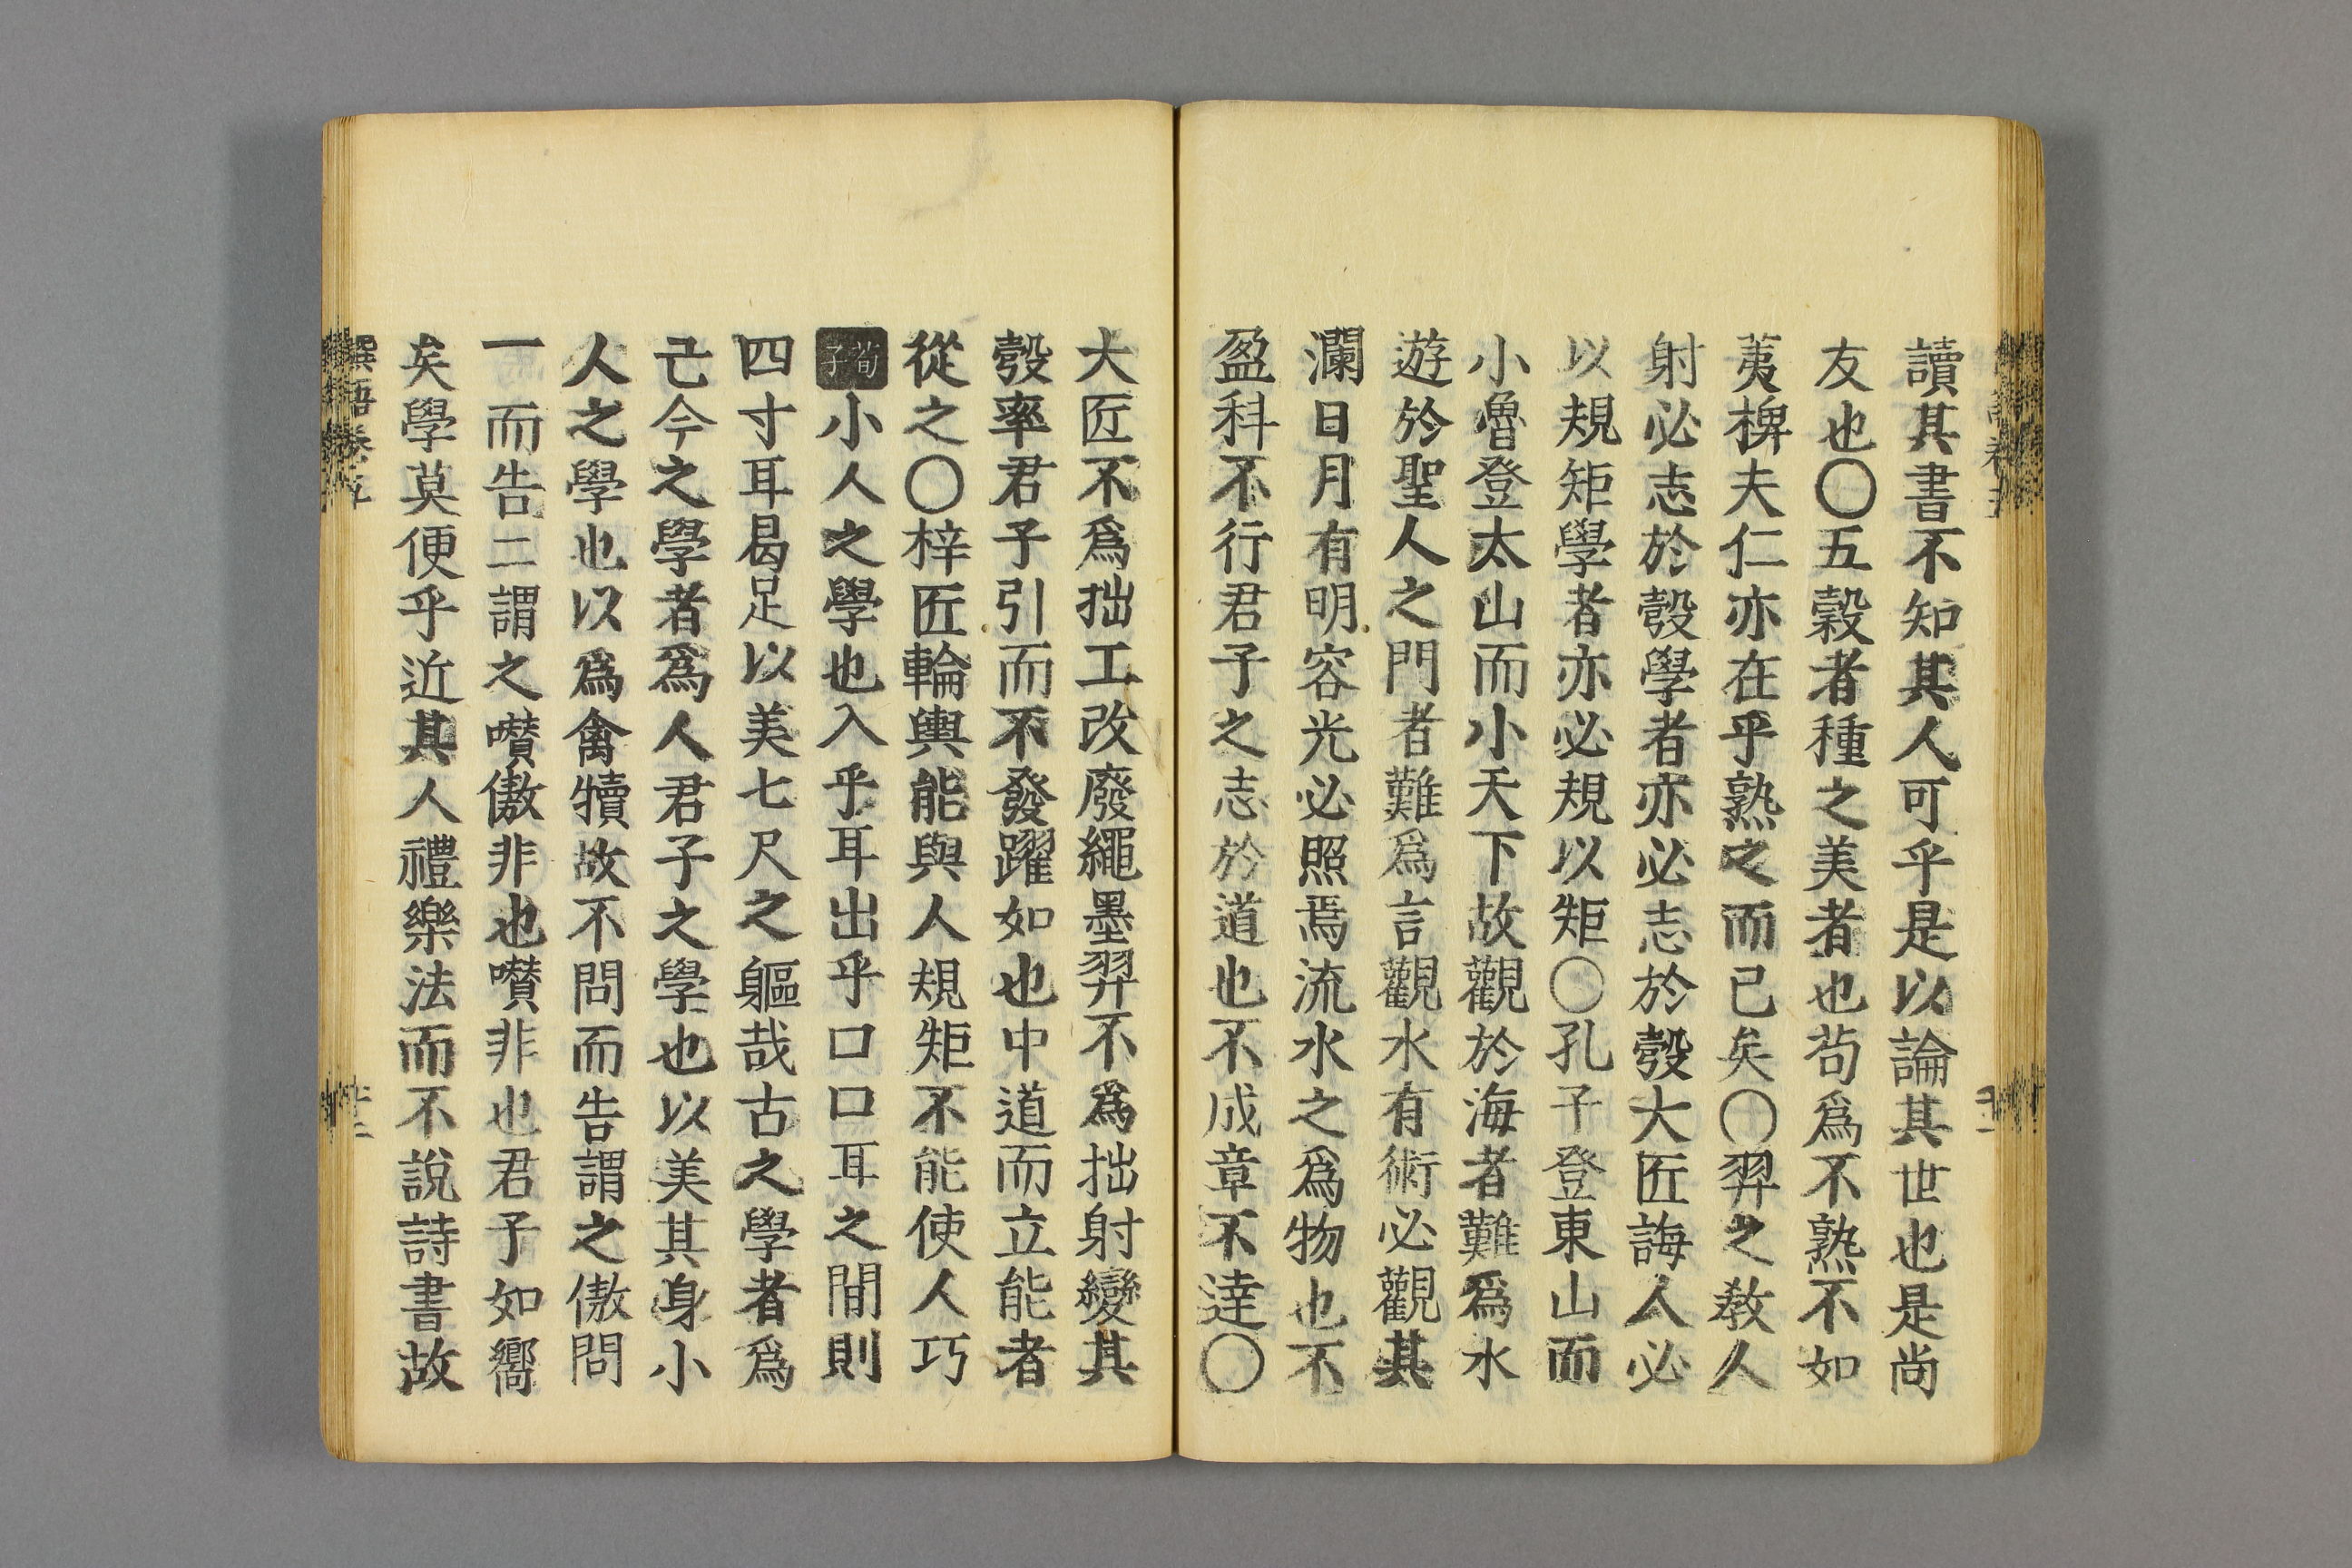 讀其書不知其人可乎是以論其世也是尚
友也〇五穀者種之美者也茍爲不熟不如
荑稗夫仁亦在乎熟之而已矣〇羿之教人
射必志於彀學者亦必志於彀大匠誨人必
以規矩學者亦必規以矩〇孔子登東山而
小魯登太山而小天下故觀於海者難爲水
遊於聖人之門者難爲言觀水有術必觀其
瀾日月有明容光必照焉流水之爲物也不
盈科不行君子之志於道也不成章不達〇
大匠不爲拙工改廢繩墨羿不爲拙射變其
彀率君子引而不發躍如也中道而立能者
從之〇梓匠輪輿能與人規矩不能使人巧
荀子小人之學也入乎耳出乎口口耳之間則
四寸耳曷足以美七尺之軀哉古之學者爲
己今之學者爲人君子之學也以美其身小
人之學也以爲禽犢故不問而告謂之傲問
一而告二謂之囋傲非也囋非也君子如嚮
矣學莫便乎近其人禮樂法而不說詩書故